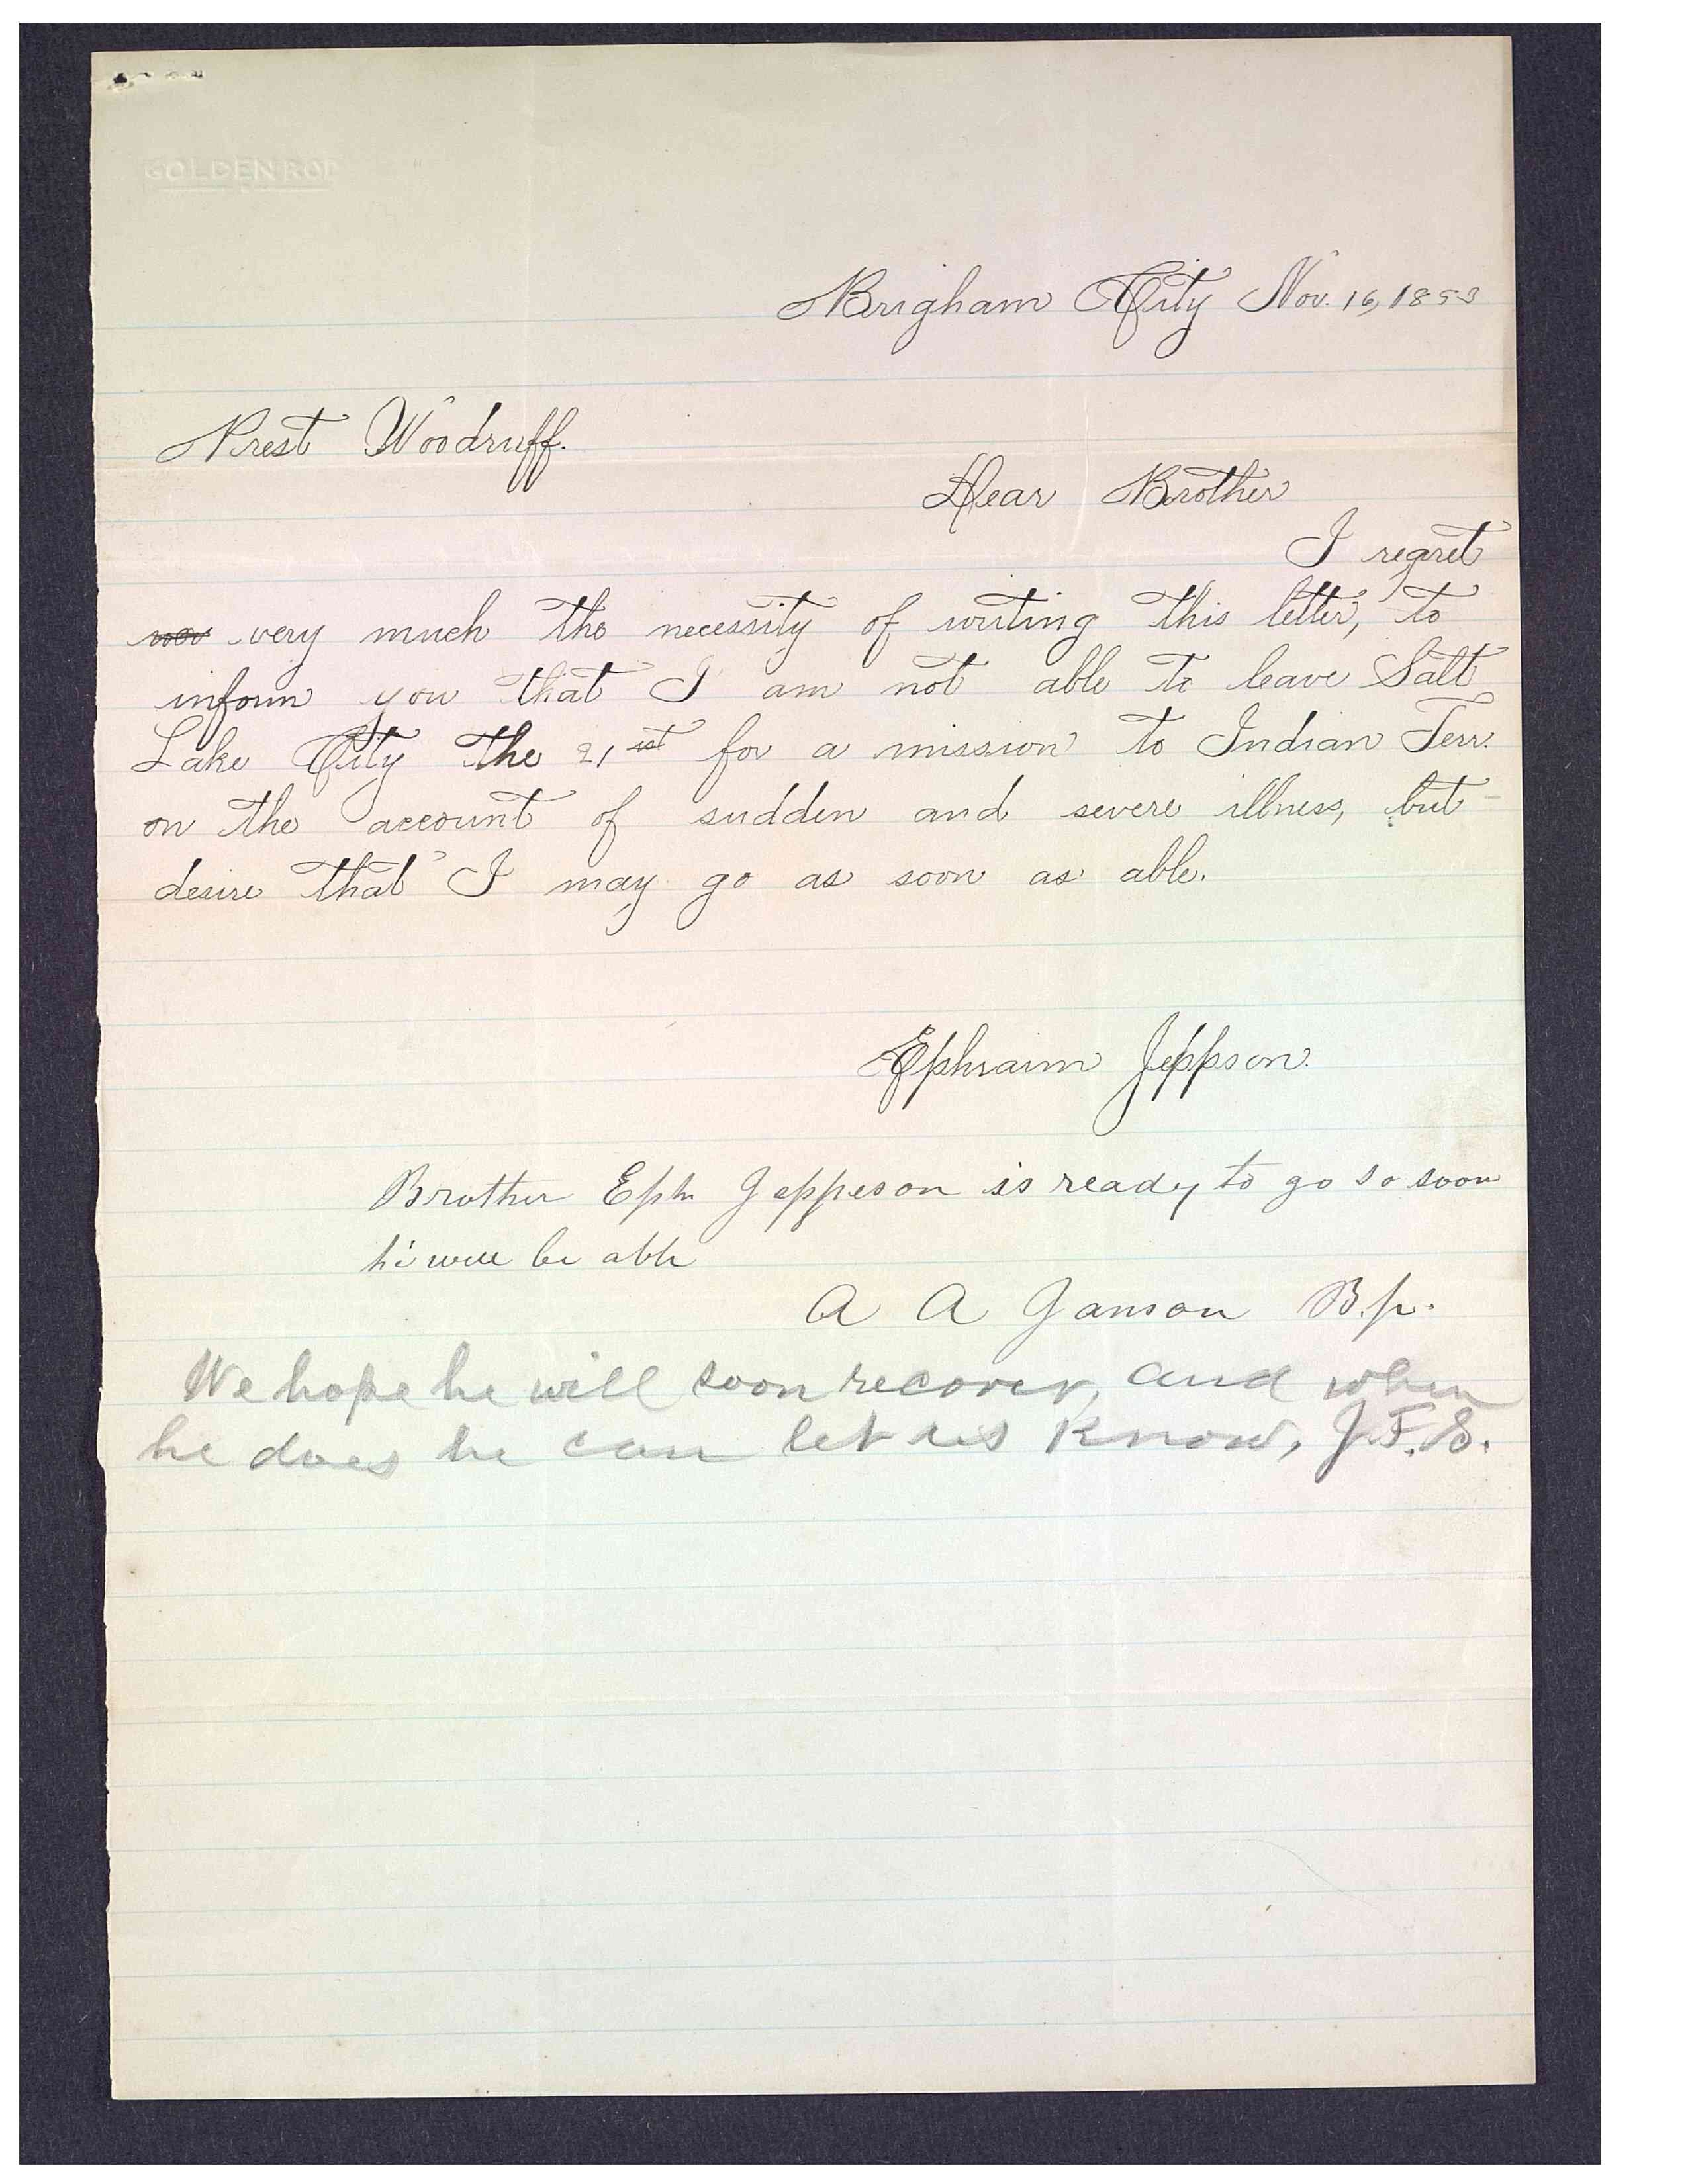 GOLDEN ROD
Brigham City Nov. 16, 1893
Prest Woodruff.
Dear Brother
I regret
very much the necessity of writing this letter, to
inform you that I am not able to leave Salt
Lake City the 21st for a mission to Indian Terr.
on the account of sudden and severe illness, but
desire that I may go as soon as able.
Ephraim Jeppson.
Brother Eph Jeppeson is ready to go so soon
he will be able
A A Janson Bp.
We hope he will soon recover, and when
he does he can let us know, J.F.S.